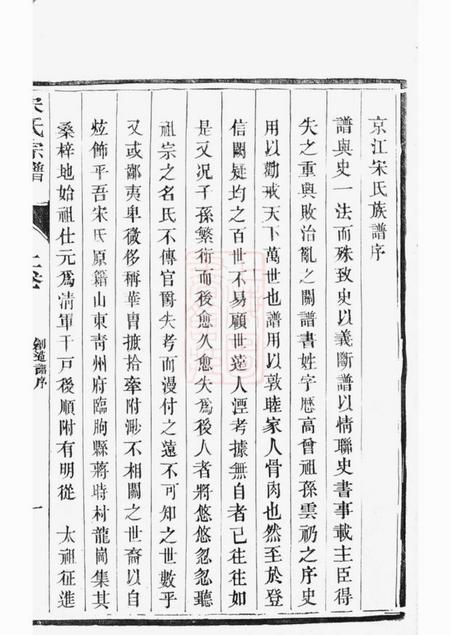 京江宋氏族譜序
譜與史一法而殊致史以義斷譜以情聯史書事載主臣得
失之重與敗治亂之關譜書姓字歷高曾祖孫雲礽之序史
用以勸戒天下萬世也譜用以敦睦家人骨肉也然至於登
信闕疑均之百世不易顧世遠人湮考據無自者已往往如
是又况子孫繁衍而後愈久愈失為後人者將悠悠忽忽聽
祖宗之名氏不傳官爵失考而漫付之遠不可知之世數乎
又或鄙夷卑微侈稱華冑摭拾牽附渺不相關之世裔以自
炫飾乎吾宋氏原籍山東青州府臨朐縣蔣峙村龍崗集其
桑梓地始祖仕元為清軍千戶後順附有明從 太祖征進
宋氏宗譜
上卷
創造譜序
一